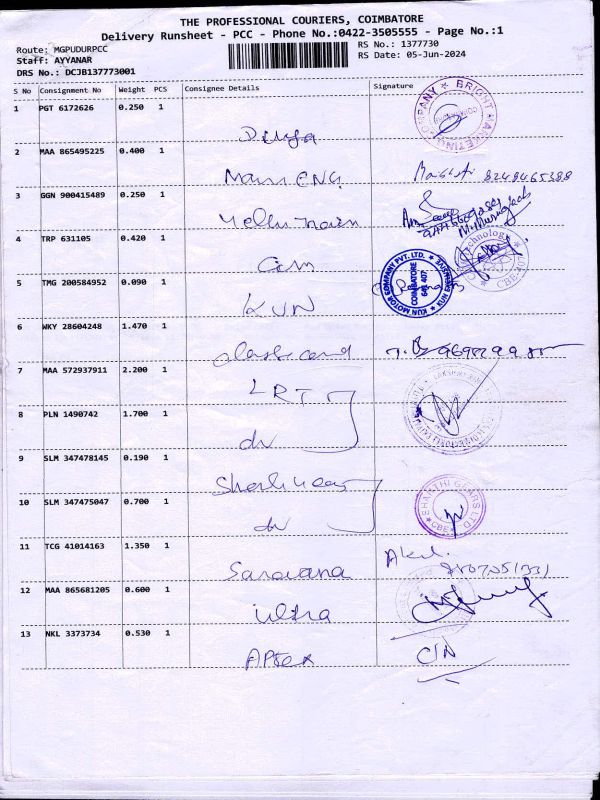 THE PROFESSIONAL COURIERS, COIMBATORE
Delivery Runsheet - PCC - Phone No.:0422-3505555 - Page No.:1
Route: MGPUDURPCC
RS No.: 1377730
Staff: AYYANAR
RS Date: 05-Jun-2024
DRS No.: DCJB137773001
S No Consignment No Weight PCS Consignee Details Signature
1 PGT 6172626 0.250 1
Divya
BRIGHT MARKETING COMPANY
2 MAA 865495225 0.400 1
3 GGN 900415489 0.250 1
4 TRP 631105 0.420 1
Technology CBE
5 TMG 200584952 0.090 1
KUN
KUN MOTOR COMPANY PVT. LTD. COIMBATORE 641 407
6 WKY 28604248 1.470 1
7 MAA 572937911 2.200 1
LRT
8 PLN 1490742 1.700 1
9 SLM 347478145 0.190 1
10 SLM 347475047 0.700 1
SHANTHI GEARS LTD CBE
11 TCG 41014163 1.350 1
Saravana
12 MAA 865681205 0.600 1
Ultra
13 NKL 3373734 0.530 1